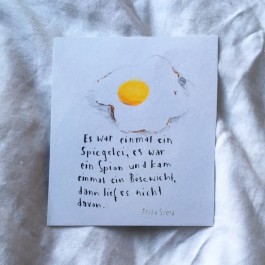 Es war einmal ein
Spiegelei, es war
ein Spion und kam
einmal ein Bösewicht,
dann lief es nicht
davon.